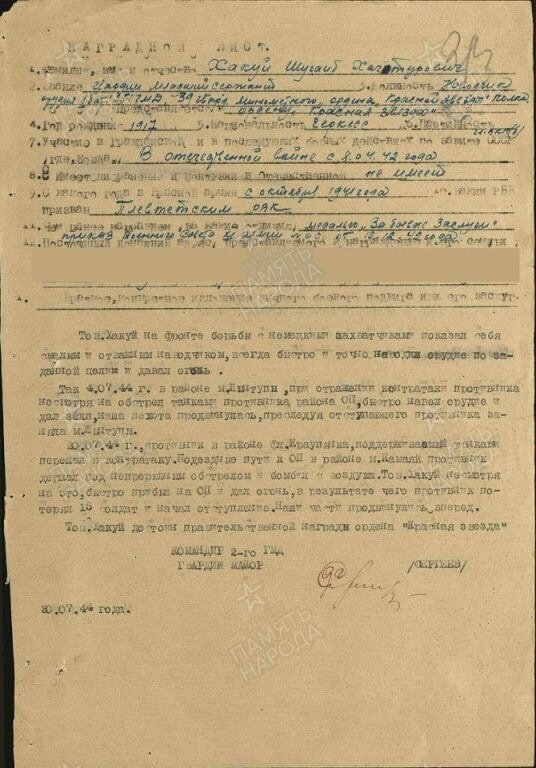 НАГРАДНОЙ ЛИСТ.
1. Фамилия, имя и отчество Хакуй Шугаиб Хачатурович
2. Звание Гвардии младший сержант 3. Должность Наводчик
орудия 39 Гвард. Минометного, ордена "Красной Звезды" Полка
Представляется к ордену "Красная Звезда"
4. Год рождения 1917 5. Национальность Черкесс 6. Партийность
7. Участие в Гражданской и в последующих боевых действиях по защите СССР
/где, когда/ В отечественной войне с 8.04.42 года
8. Имеет ли ранения и контузии в Отечественной не имеет
9. С какого года в Красной армии с октября 1941 года 10. каким РВК
призван РВК
11. Чем ранее награжден, за какие отличия медалью "За боевые Заслуги"
приказ армии от 12.12.42 года
Краткое, конкретное изложение личного боевого подвига или его заслуг.
Тов. Хакуй на фронте борьбы с немецкими захватчиками показал себя
смелым и отважным наводчиком, всегда быстро и точно наводил орудие по за-
данной цели и давал огонь.
Так 4.07.44 г. в районе м.Лынтупы, при отражении контратаки противника
несмотря на обстрел танками противника района ОП, быстро навел орудие и
дал залп, наша пехота продвинулась, преследуя отступающего противника за-
няла м.Лынтупы.
30.07.44 г., противник в районе фл. Краупянка, поддерживаемый танками
перешел в контратаку. Подездные пути к ОП в районе м.Камаяй противник
держал под непрерывным обстрелом и бомбил с воздуха. Тов. Хакуй несмотря
на это, быстро прибыл на ОП и дал огонь, в результате чего противник по-
терял 15 солдат и начал отступление. Наши части продвинулись вперед.
Тов. Хакуй достоин правительственной награды ордена "Красная звезда"
КОМАНДИР 2-го ГМД
ГВАРДИИ МАЙОР /СЕРГЕЕВ/
30.07.44 года.
ПАМЯТЬ
НАРОДА